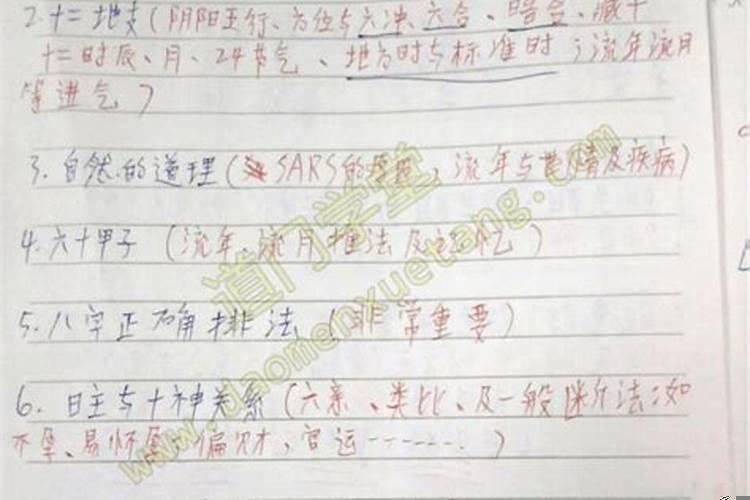 2.十二地支(阴阳五行、方位与六冲、六合、暗合、藏干
十二时辰、月、24节气、地方时与标准时;流年流月
等进气)
3.自然的道理(SARS的原因,流年与世情及疾病)
4.六十甲子(流年、流月推法及记忆)
5.八字正确排法(非常重要)
6.日主与十神关系(六亲、类比、及一般断介法:如
不孕、易怀孕、偏财、官运-------.)
道门学堂
www.daomenxuetang.com